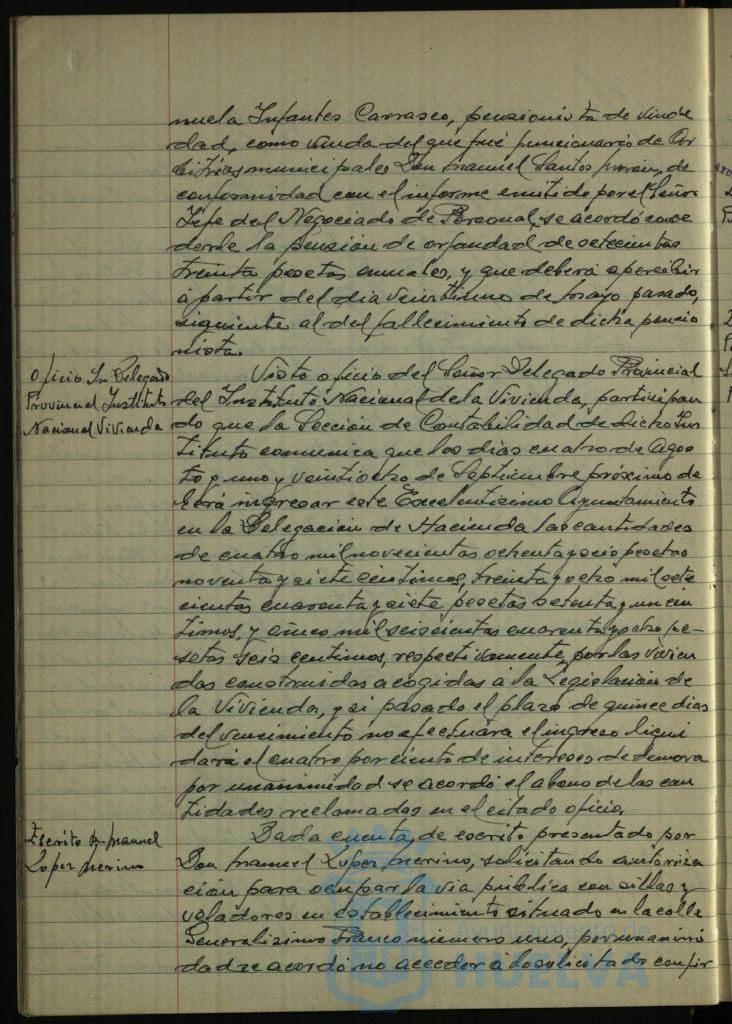 nuela Infantes Carrasco, pensionista de viude
dad, como viuda del que fué funcionario de Ar
bitrios municipales Don Manuel Santos de
conformidad con el informe emitido por el Señor
Jefe del Negociado de Personal, se acordó conce
derle la pensión de orfandad de setecientas
treinta pesetas anuales, y que deberá a percibir
á partir del dia veintiuno de Mayo pasado,
siguiente al del fallecimiento de dicha pensio
nista.
Oficio Sr. Delegado
Provincial Instituto
Nacional Vivienda
Visto oficio del Señor Delegado Provincial
del Instituto Nacional de la Vivienda, participan
do que la Sección de Contabilidad de dicho Ins
tituto comunica que los dias cuatro de Agos
to y uno y veintiocho de Septiembre próximo de
berá ingresar este Excelentisimo Ayuntamiento
en la Delegación de Hacienda las cantidades
de cuatro mil novecientas ochenta y seis pesetas
noventa y siete centimos, treinta y ocho mil sete
cientas cuarenta y siete pesetas setenta y un cen
timos, y cinco mil seiscientas cuarenta y ocho pe-
setas seis centimos, respectivamente, por las vivien
das construidas acogidas á la Legislación de
la Vivienda, y si pasado el plazo de quince dias
del vencimiento no efectuára el ingreso liqui
dará el cuatro por ciento de intereses de demora
por unanimidad se acordó el abono de las can
tidades reclamadas en el citado oficio.
Escrito Dn. Manuel
Lopez Merino
Dada cuenta, de escrito presentado por
Don Manuel Lopez Merino, solicitando autoriza
ción para ocupar la via pública con sillas y
veladores en establecimiento situado en la calle
Generalisimo Franco número uno, por unanimi
dad se acordó no acceder á lo solicitado con fir
Ayuntamiento de
HUELVA